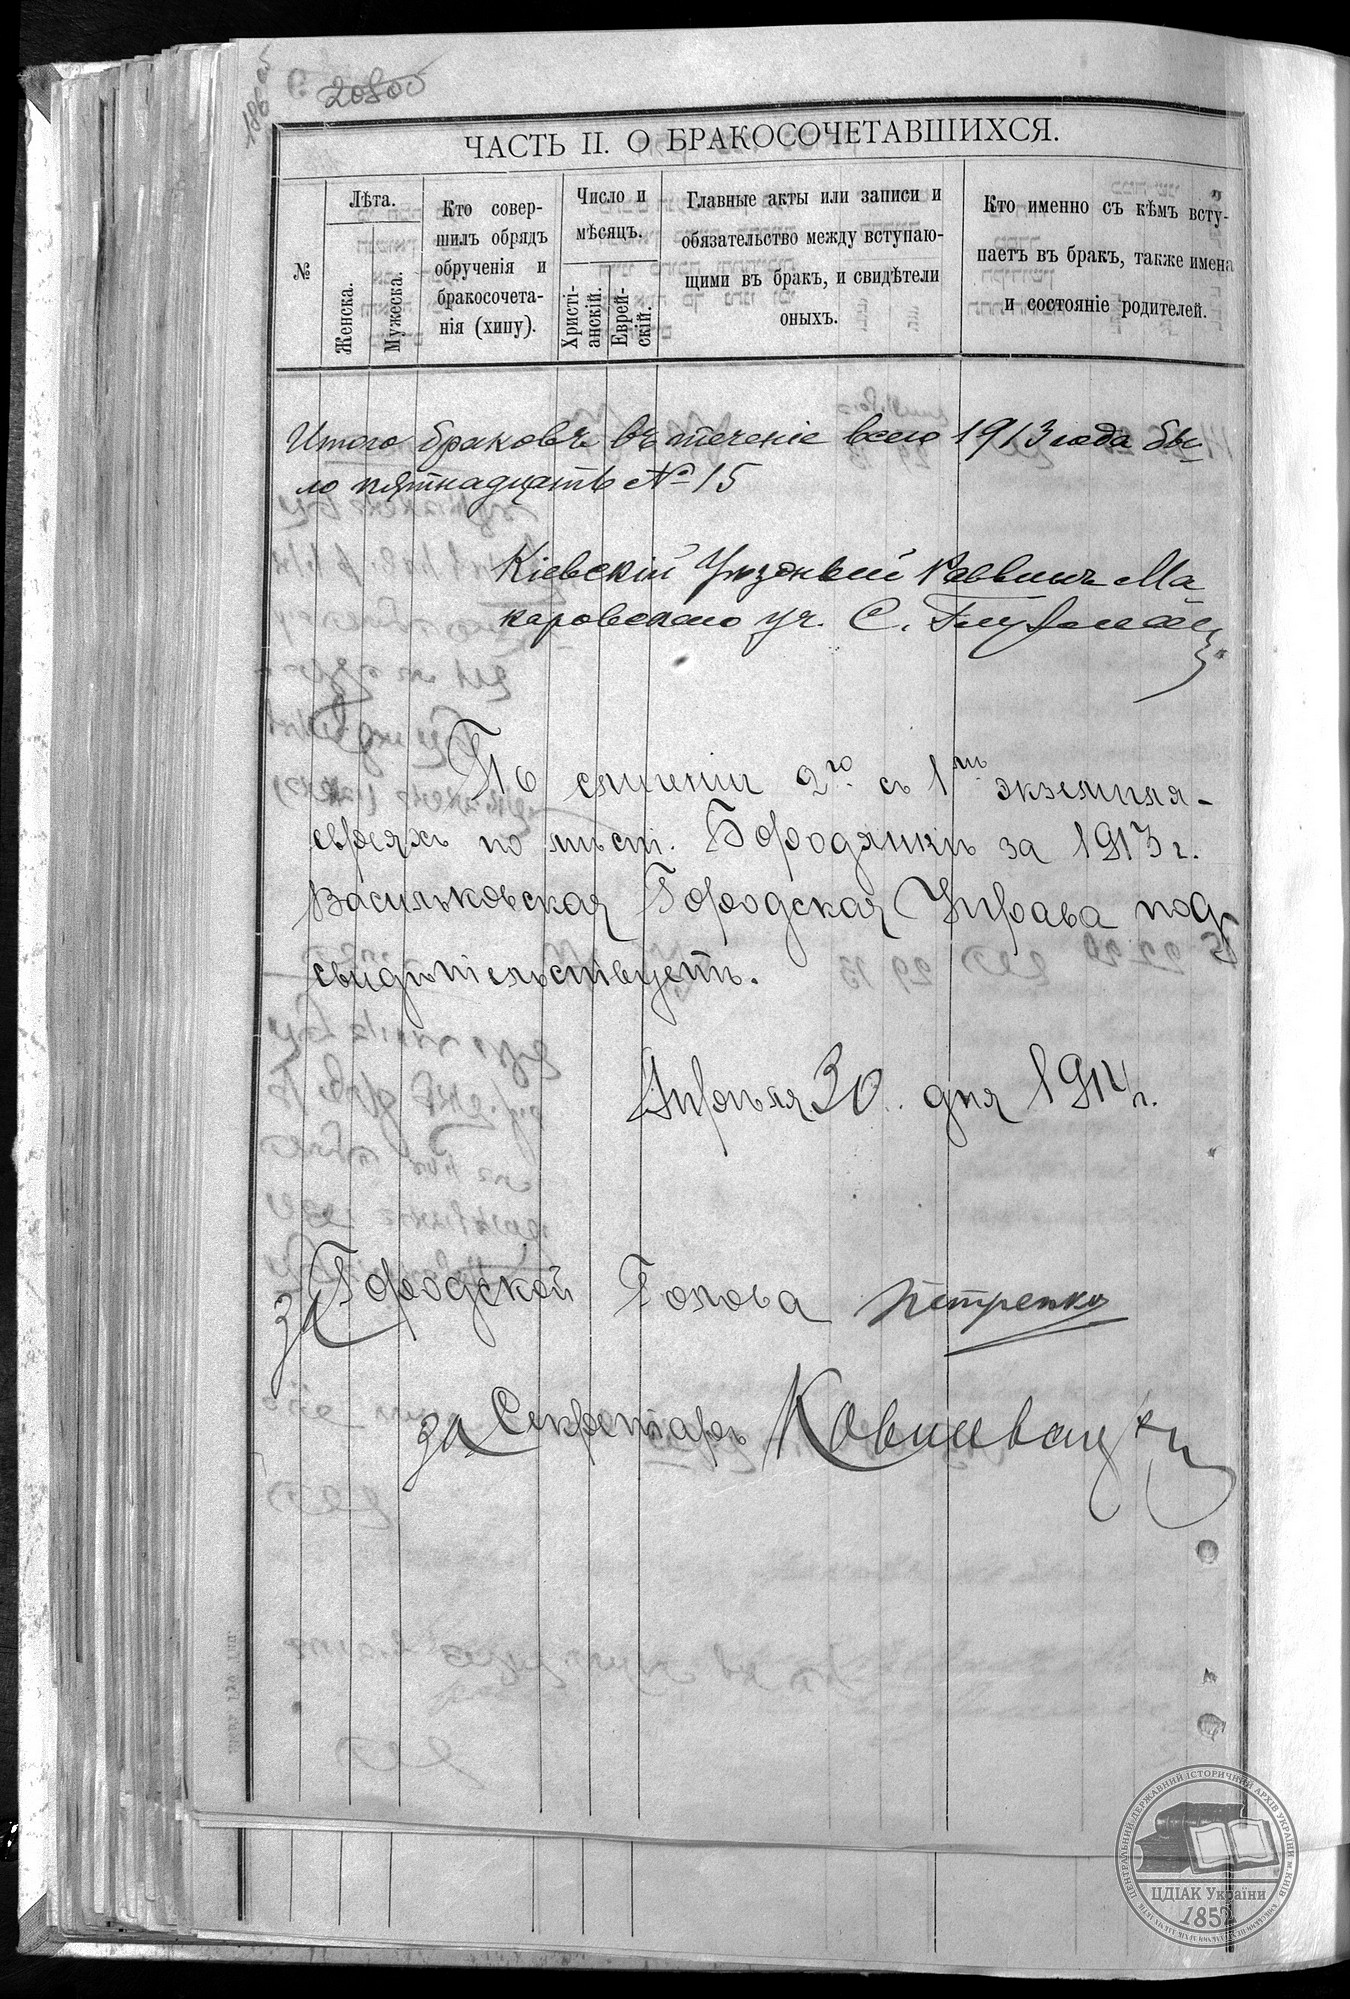 20800
ЧАСТЬ II. О БРАКОСОЧЕТАВШИХСЯ.
№
Лѣта.
Женска.
Мужеска.
Кто совер-
шилъ обрядъ
обрученія и
бракосочета-
нія (хипу).
Число и
мѣсяцъ.
Христі-
анскій.
Еврей-
скій.
Главные акты или записи и
обязательство между вступаю-
щими въ бракъ, и свидѣтели
оныхъ.
Кто именно съ кѣмъ всту-
паетъ въ бракъ, также имена
и состояніе родителей.
Итого браковъ въ теченіе всего 1913 года бы-
ло пятнадцать № 15
Кіевскій Уѣздный Раввинъ Ма
каровскаго уч. С.
По сличеніи 2го съ 1мъ экземпля-
по мѣст. Бородянкѣ за 1913 г.
Васильковская Городская Управа под
свидѣтельствуетъ.
Апрѣля 30 дня 1914 г.
за Городской Голова Петренко
за Секретаръ
ЦЕНТРАЛЬНИЙ ДЕРЖАВНИЙ ІСТОРИЧНИЙ АРХІВ УКРАЇНИ, м. КИЇВ
ЦДІАК України
1852